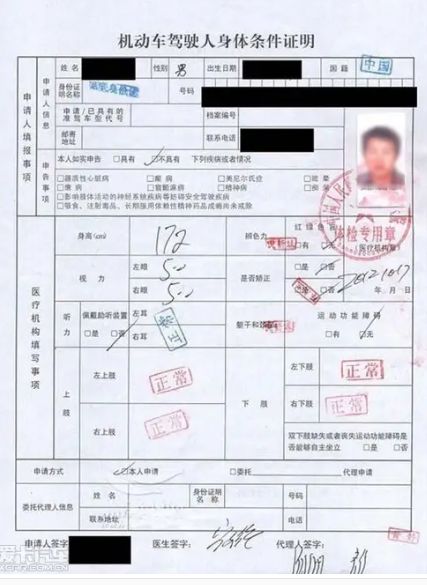 机动车驾驶人身体条件证明
姓名 性别 男 出生日期 国籍 中国
申请人填报事项
申请人信息
身份证明名称 号码
申请/已具有的准驾车型代号 档案编号
邮寄地址 联系电话
申告事项
本人如实申告 □具有 □不具有 下列疾病或者情况
□器质性心脏病 □癫痫 □美尼尔氏症 □眩晕
□癔病 □震颤麻痹 □精神病 □痴呆
□影响肢体活动的神经系统疾病等妨碍安全驾驶疾病
□吸食、注射毒品、长期服用依赖性精神药品成瘾尚未戒除
医疗机构填写事项
身高(cm) 172 辨色力 红绿色盲
□有 □无
(医疗机构章)
体检专用章
视力 左眼 5.0 是否矫正 □是 □否
右眼 5.0 □是 □否
年 月 日
听力 佩戴助听装置 □是 □否 左耳 正常
右耳 正常
运动功能障碍
□有 □无
上肢 左上肢 正常
右上肢 正常
下肢 左下肢 正常
右下肢 正常
双下肢缺失或者丧失运动功能障碍是否能够自主坐立 □是 □否
申请方式 □本人申请 □委托 代理申请
委托代理人信息 姓名 身份证明名称 号码
联系地址 电话
申请人签字 医生签字: 代理人签字:
XCAR.COM.CN